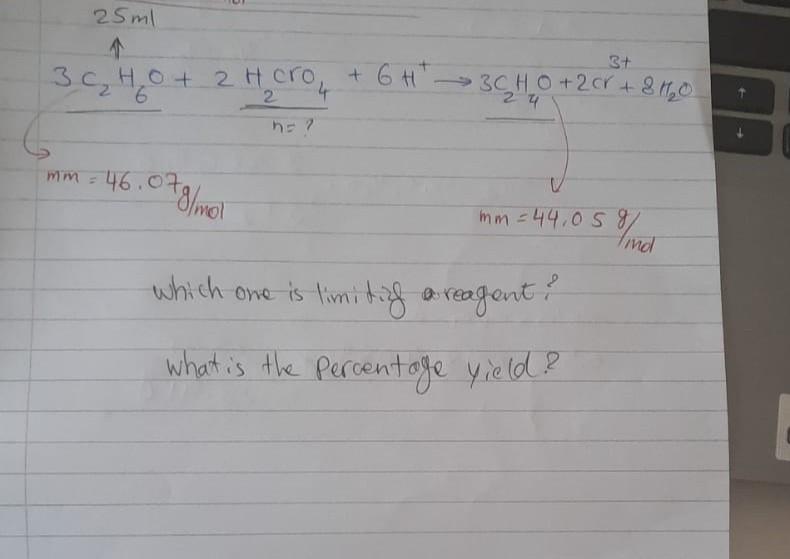 25ml
3C₂H₆O + 2H₂CrO₄ + 6H⁺ → 3C₂H₄O + 2Cr³⁺ + 8H₂O
n = ?
mm = 46.07g/mol
mm = 44.05 g/mol
which one is limitig a reagent?
what is the percentage yield?